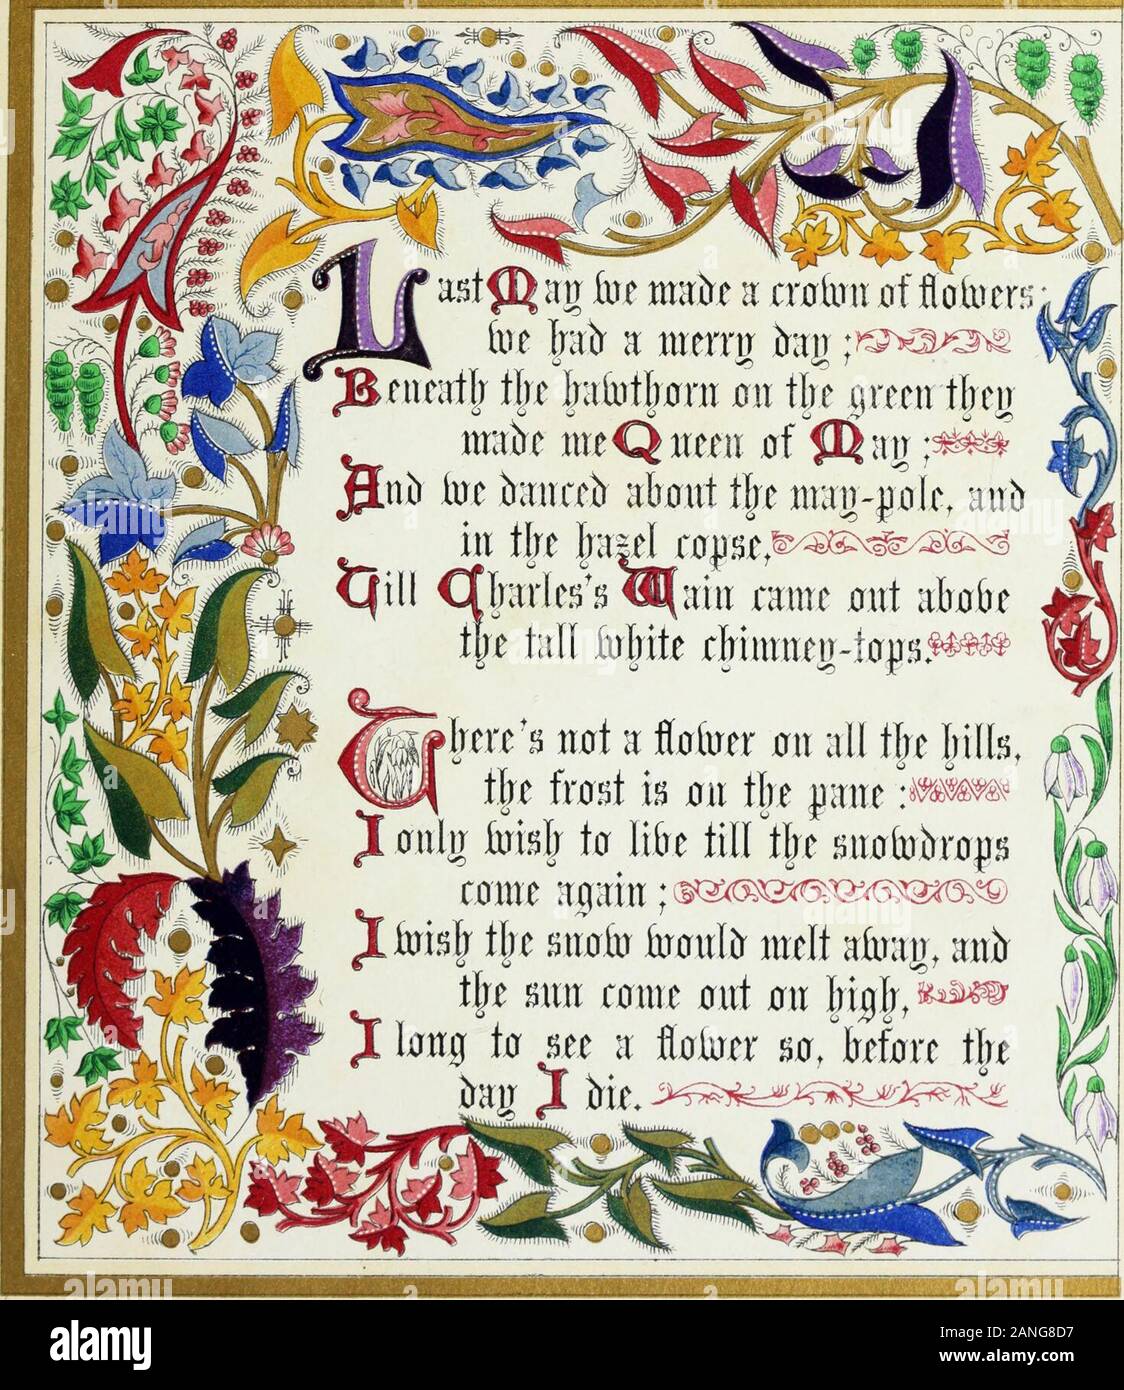 Last May we made a crown of flowers:
we had a merry day;
Beneath the hawthorn on the green they
made me Queen of May;
And we danced about the may-pole, and
in the hazel copse,
Till Charles's Wain came out above
the tall white chimney-tops.
There's not a flower on all the hills,
the frost is on the pane:
I only wish to live till the snowdrops
come again;
I wish the snow would melt away, and
the sun come out on high,
I long to see a flower so, before the
day I die.
alamy
Image ID: 2ANG8D7
www.alamy.com